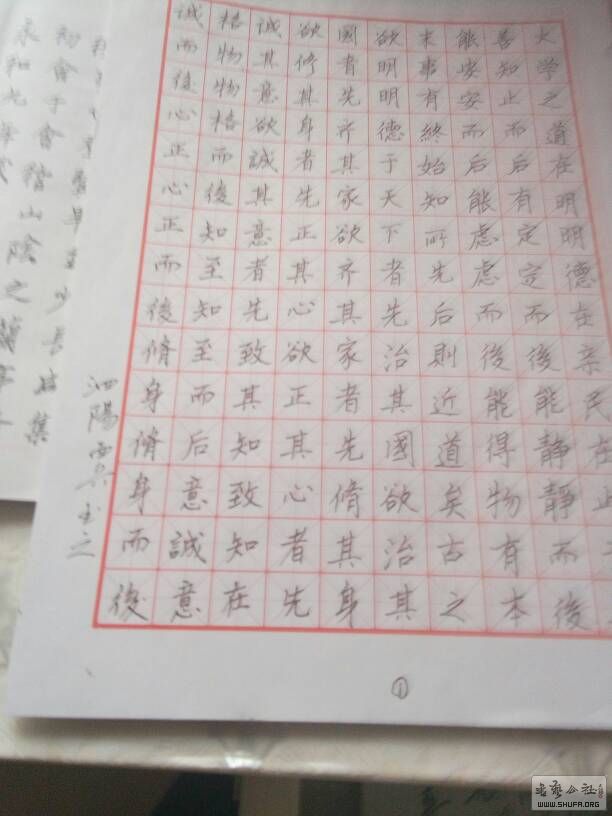 大学之道在明明德在亲民在
善知止而后有定定而後能静静而後
能安安而后能虑虑而後能得物有本
末事有終始知所先后則近道矣古之
欲明明德于天下者先治其國欲治其
國者先齐其家欲齐其家者先脩其身
欲修其身者先正其心欲正其心者先
誠其意欲誠其意者先致其知致知在
格物物格而後知至知至而后意誠意
誠而後心正心正而後脩身脩身而後
泗陽书之
①
畢至少長咸集
初會于會稽山陰之蘭亭
永和九年歲
WWW.SHUFA.ORG